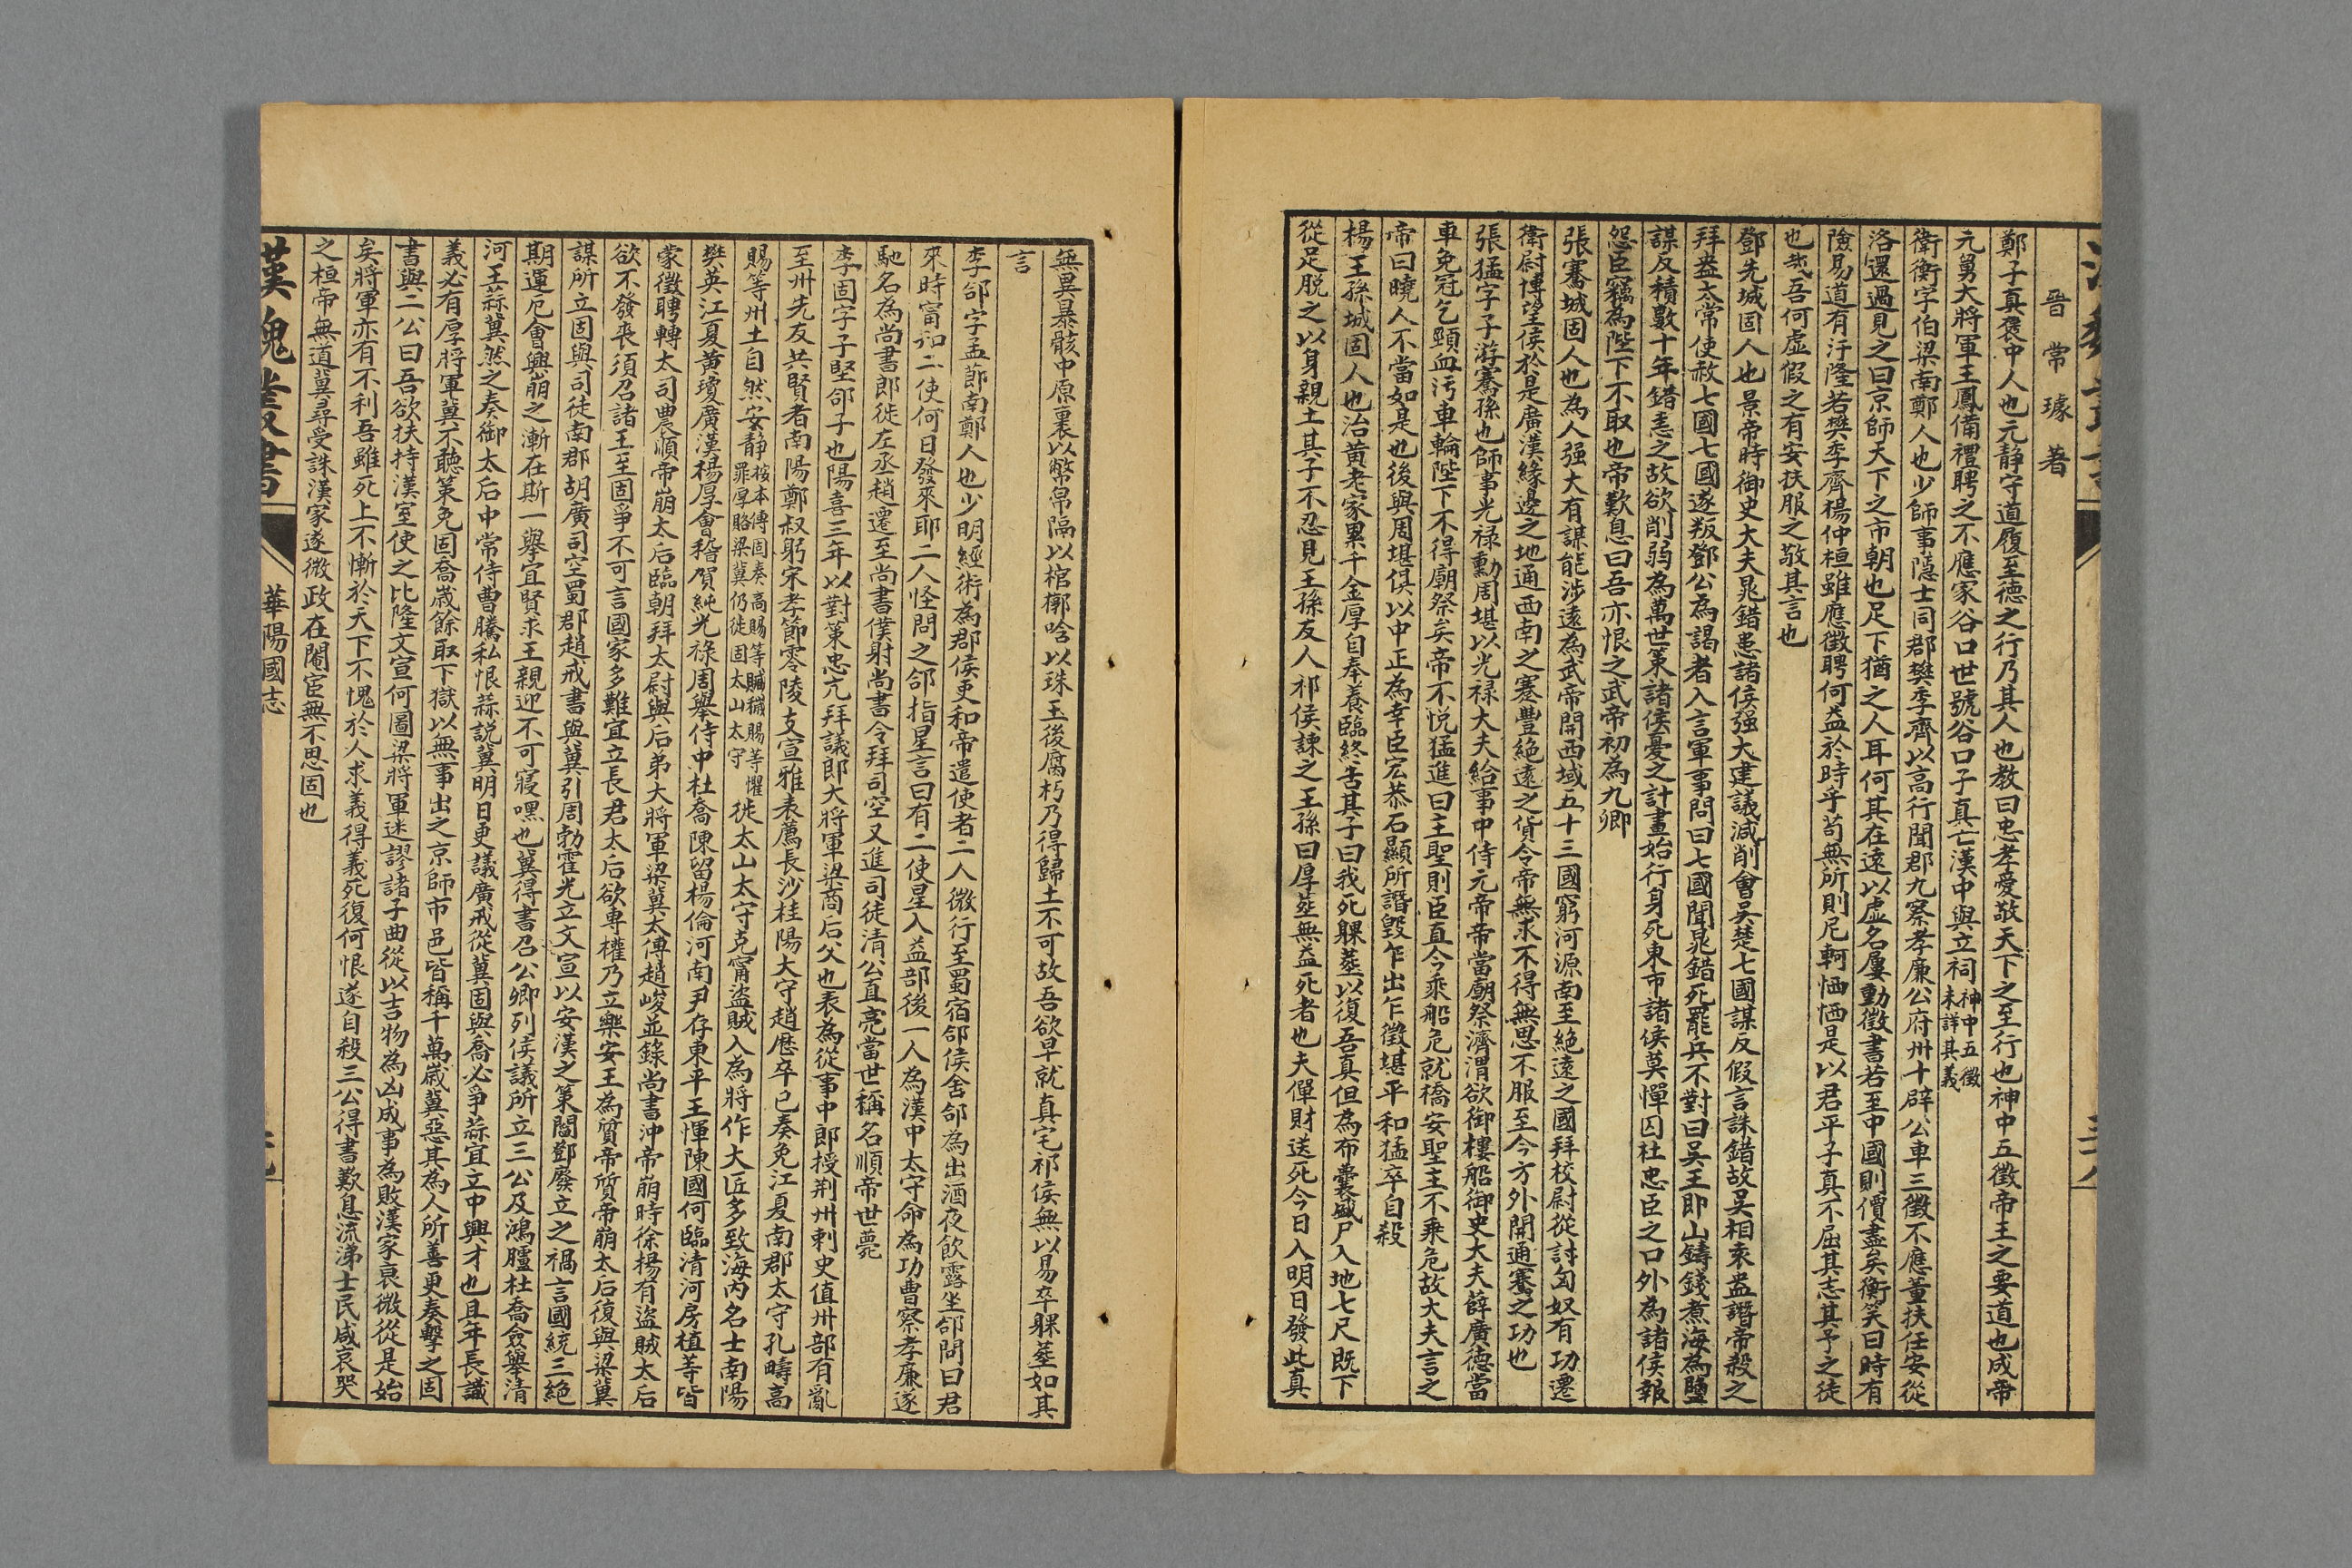 晉常璩著
鄭子真褒中人也元静守道履至德之行乃其人也教曰忠孝愛敬天下之至行也神中五徵帝王之要道也成帝
元舅大將軍王鳳備禮聘之不應家谷口世號谷口子真亡漢中與立祠神中五徵未詳其義
衛衡字伯梁南鄭人也少師事隱士同郡樊季齊以高行聞郡九察孝廉公府州十辟公車三徵不應董扶任安從
洛還過見之曰京師天下之市朝也足下猶之人耳何其在遠以虛名屢動徵書若至中國則價盡矣衡笑曰時有
險易道有汙隆若樊季齊楊仲桓雖應徵聘何益於時乎苟無所則尼軻恓恓是以君平子真不屈其志其予之徒
也哉吾何虛假之有安扶服之敬其言也
鄧先城固人也景帝時御史大夫晁錯患諸侯强大建議減削會吳楚七國謀反假言誅錯故吳相袁盎譖帝殺之
拜盎太常使赦七國七國遂叛鄧公為謁者入言軍事問曰七國聞晁錯死罷兵不對曰吳王即山鑄錢煮海為鹽
謀反積數十年錯恚之故欲削弱為萬世策諸侯憂之計畫始行身死東市諸侯莫憚囚杜忠臣之口外為諸侯報
怨臣竊為陛下不取也帝歎息曰吾亦恨之武帝初為九卿
張騫城固人也為人强大有謀能涉遠為武帝開西域五十三國窮河源南至絕遠之國拜校尉從討匈奴有功遷
衛尉博望侯於是廣漢緣邊之地通西南之蹇豐絕遠之貨令帝無求不得無思不服至今方外開通騫之功也
張猛字子游騫孫也師事光禄勳周堪以光禄大夫給事中侍元帝帝當廟祭濟渭欲御樓船御史大夫薛廣德當
車免冠乞頸血污車輪陛下不得廟祭矣帝不悅猛進曰主聖則臣直今乘船危就橋安聖主不乘危故大夫言之
帝曰曉人不當如是也後與周堪俱以中正為幸臣宏恭石顯所譖毀乍出乍徵堪平和猛卒自殺
楊王孫城固人也治黃老家累千金厚自奉養臨終告其子曰我死躶葬以復吾真但為布囊盛尸入地七尺既下
從足脱之以身親土其子不忍見王孫友人祁侯諫之王孫曰厚葬無益死者也夫僤財送死今日入明日發此真
無異暴骸中原裹以幣帛隔以棺槨唅以珠玉後腐朽乃得歸土不可故吾欲早就真宅祁侯無以易卒躶葬如其
言
李郃字孟節南鄭人也少明經術為郡侯吏和帝遣使者二人微行至蜀宿郃侯舍郃為出酒夜飲露坐郃問曰君
來時甯知二使何日發來耶二人怪問之郃指星言曰有二使星入益部後一人為漢中太守命為功曹察孝廉遂
馳名為尚書郎徙左丞趙遷至尚書僕射尚書令拜司空又進司徒清公直亮當世稱名順帝世薨
李固字子堅郃子也陽喜三年以對策忠亢拜議郎大將軍梁商后父也表為從事中郎授荆州剌史值州部有亂
至州先友共賢者南陽鄭叔躬宋孝節零陵支宣雅表薦長沙桂陽大守趙歷卒已奏免江夏南郡太守孔疇高
賜等州土自然安静按本傳固奏高賜等贓穢賜等懼罪厚賂梁冀仍徙固太山太守徙太山太守克甯盜賊入為將作大匠多致海內名士南陽
樊英江夏黃瓊廣漢楊厚會稽賀純光禄周舉侍中杜喬陳留楊倫河南尹存東平王惲陳國何臨清河房植等皆
蒙徵聘轉太司農順帝崩太后臨朝拜太尉與后弟大將軍梁冀太傅趙峻並錄尚書沖帝崩時徐揚有盜賊太后
欲不發喪須召諸王至固爭不可言國家多難宜立長君太后欲專權乃立樂安王為質帝質帝崩太后復與梁冀
謀所立固與司徒南郡胡廣司空蜀郡趙戒書與冀引周勃霍光立文宣以安漢之策閻鄧廢立之禍言國統三絕
期運厄會興崩之漸在斯一舉宜賢求王親迎不可寢嘿也冀得書召公卿列侯議所立三公及鴻臚杜喬僉舉清
河王蒜冀然之奏御太后中常侍曹騰私恨蒜説冀明日更議廣戒從冀固與喬必爭蒜宜立中興才也且年長識
義必有厚將軍冀不聽策免固喬歲餘取下獄以無事出之京師市邑皆稱千萬歲冀惡其為人所善更奏擊之固
書與二公曰吾欲扶持漢室使之比隆文宣何圖梁將軍迷謬諸子曲從以吉物為凶成事為敗漢家衰微從是始
矣將軍亦有不利吾雖死上不慚於天下不愧於人求義得義死復何恨遂自殺三公得書歎息流涕士民咸哀哭
之桓帝無道冀尋受誅漢家遂微政在閹宦無不思固也
漢魏叢書 華陽國志